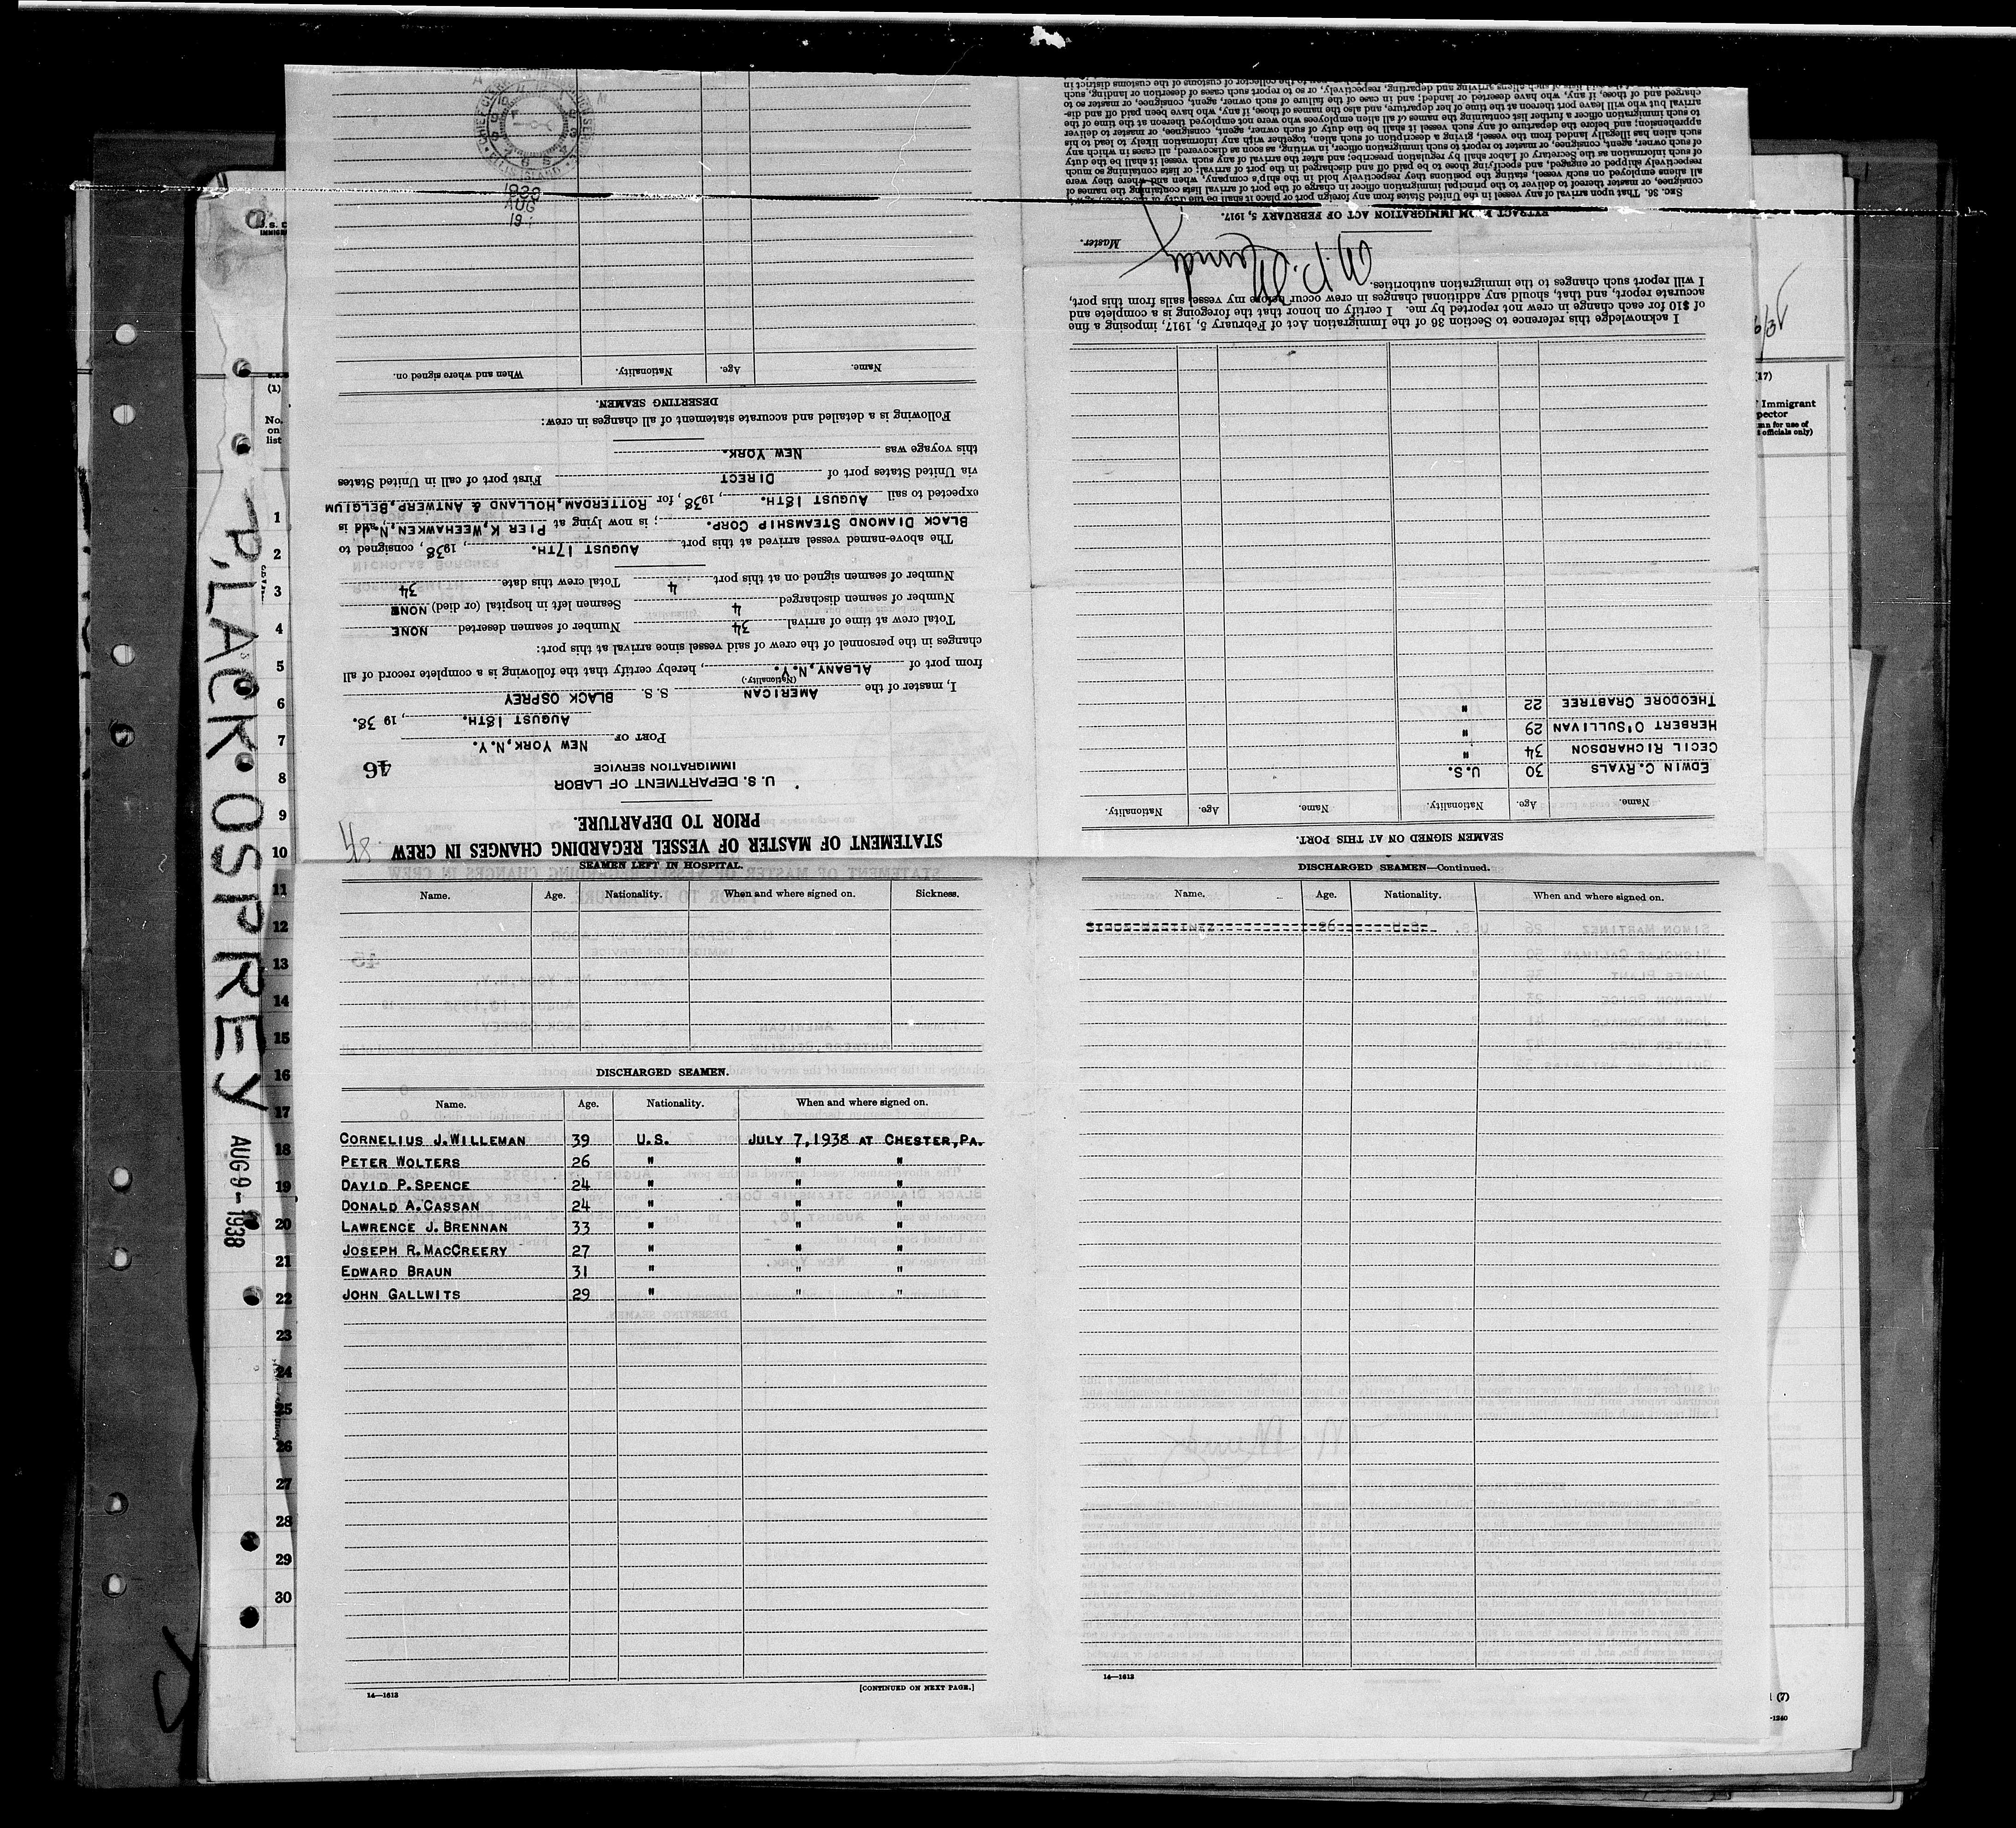 STATEMENT OF MASTER OF VESSEL REGARDING CHANGES IN CREW
PRIOR TO DEPARTURE.
48
U. S. DEPARTMENT OF LABOR
IMMIGRATION SERVICE
46
PORT OF NEW YORK, N.Y.
AUGUST 18TH. , 19 38.
I, master of the AMERICAN S. S. BLACK OSPREY
(Nationality.)
from port of ALBANY, N.Y. , hereby certify that the following is a complete record of all
changes in the personnel of the crew of said vessel since arrival at this port:
Total crew at time of arrival 34 Number of seamen deserted NONE
Number of seamen discharged 4 Seamen left in hospital (or died) NONE
Number of seamen signed on at this port 4 Total crew this date 34
The above-named vessel arrived at this port AUGUST 17TH. , 1938 , consigned to
BLACK DIAMOND STEAMSHIP CORP. ; is now lying at PIER K, WEEHAWKEN, N.J. and is
expected to sail AUGUST 18TH. , 1938 , for ROTTERDAM, HOLLAND & ANTWERP, BELGIUM
via United States port of DIRECT First port of call in United States
this voyage was NEW YORK.
Following is a detailed and accurate statement of all changes in crew:
DESERTING SEAMEN.
Name. Age. Nationality. When and where signed on.
1938
AUG
18
SEAMEN SIGNED ON AT THIS PORT.
Name. Age. Nationality. Name. Age. Nationality.
EDWIN C. RYALS 30 U.S.
CECIL RICHARDSON 34 "
HERBERT O'SULLIVAN 29 "
THEODORE CRABTREE 22 "
I acknowledge this reference to Section 36 of the Immigration Act of February 5, 1917, imposing a fine
of $10 for each change in crew not reported by me. I certify on honor that the foregoing is a complete and
accurate report, and that, should any additional changes in crew occur before my vessel sails from this port,
I will report such changes to the immigration authorities.
Master.
EXTRACT FROM IMMIGRATION ACT OF FEBRUARY 5, 1917.
SEC. 36. That upon arrival of any vessel in the United States from any foreign port or place it shall be the duty of the owner, agent,
consignee, or master thereof to deliver to the principal immigration officer in charge of the port of arrival lists containing the names of
all aliens employed on such vessel, stating the positions they respectively hold in the ship's company, when and where they were
respectively shipped or engaged, and specifying those to be paid off and discharged in the port of arrival; or lists containing so much
of such information as the Secretary of Labor shall by regulation prescribe; and after the arrival of any such vessel it shall be the duty
of such owner, agent, consignee, or master to report to such immigration officer, in writing, as soon as discovered, all cases in which any
such alien has illegally landed from the vessel, giving a description of such alien, together with any information likely to lead to his
apprehension; and before the departure of any such vessel it shall be the duty of such owner, agent, consignee, or master to deliver
to such immigration officer a further list containing the names of all alien employees who were not employed thereon at the time of the
arrival but who will leave port thereon at the time of her departure, and also the names of those, if any, who have been paid off and dis-
charged and of those, if any, who have deserted or landed; and in case of the failure of such owner, agent, consignee, or master so to
SEAMEN LEFT IN HOSPITAL.
Name. Age. Nationality. When and where signed on. Sickness.
DISCHARGED SEAMEN.
Name. Age. Nationality. When and where signed on.
CORNELIUS J. WILLEMAN 39 U.S. JULY 7, 1938 AT CHESTER, PA.
PETER WOLTERS 26 " " "
DAVID P. SPENCE 24 " " "
DONALD A. CASSAN 24 " " "
LAWRENCE J. BRENNAN 33 " " "
JOSEPH R. MACCREERY 27 " " "
EDWARD BRAUN 31 " " "
JOHN GALLWITS 29 " " "
14—1613 [CONTINUED ON NEXT PAGE.]
DISCHARGED SEAMEN—Continued.
Name. Age. Nationality. When and where signed on.
14—1613
BLACK OSPREY
AUG 9 - 1938
(1)
No.
on
list
1
2
3
4
5
6
7
8
9
10
11
12
13
14
15
16
17
18
19
20
21
22
23
24
25
26
27
28
29
30
Immigrant
officials only)